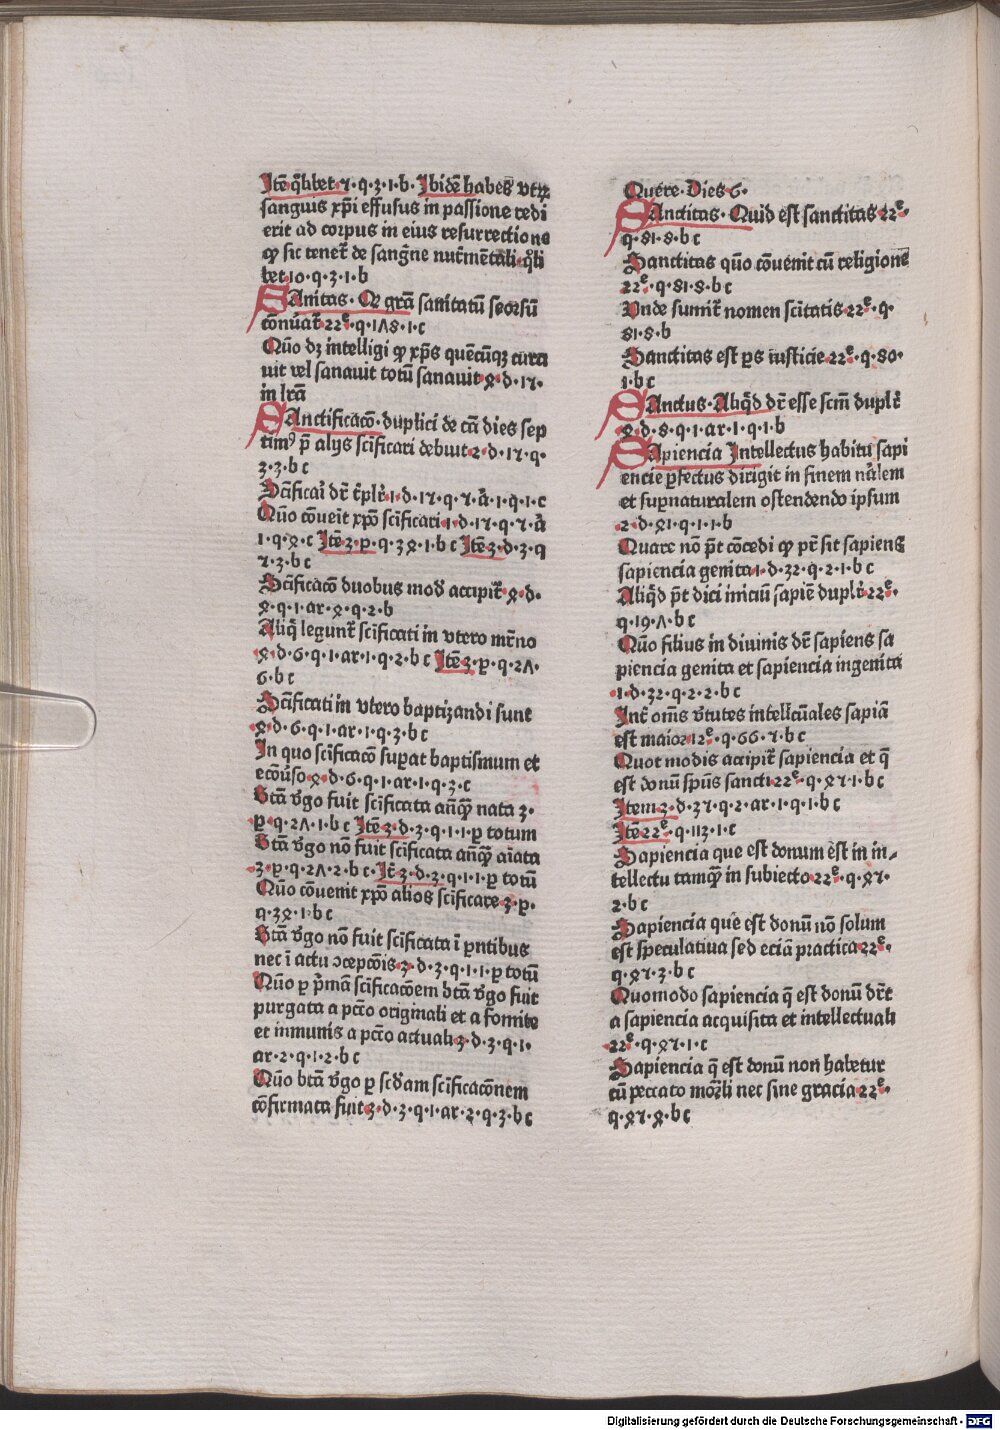 Itē qͦlibet ⁊·q·3·1·b· Ibidē habes vtꝝ
sanguis xp̄i effusus in passione redi
erit ad corpus in eius resurrectione
ꝙ sic tenet᷑ de sanḡne nut᷑mētali·qͦli
bet·10·q·3·1·b
SAnitas· Qͥ gr̄a sanitatū seorsū
cōnu̾at᷑·22ᵉ·q·1ʌ8·1·c
Qūo dꝫ intelligi ꝙ xp̄s quēcūqꝫ cura
uit vel sanauit totū sanauit·ꝝ·d·1⁊·
in lr̄a
SAnctificacō·duplici de cā dies sep
timꝰ p̄ alys scīficari debuit·2·d·1⁊·q·
3·3·b c
Qūo cōueit xpō scīficari·1·d·1⁊·q·⁊·
1·q·ꝝ·c Itē 3·p·q·3ꝝ·1·b c Itē 3·d·3·q
⁊·3·b c
Scīficacō duobus mod̄ accipit᷑·ꝝ·d·
ꝝ·q·1·ar·ꝝ·q·2·b
Aliq̄ legunt᷑ scīficati in vtero mr̄no
ꝝ·d·6·q·1·ar·1·q·2·b c Itē 3·p·q·2ʌ·
6·b c
Scīficati in vtero baptizandi sunt
ꝝ·d·6·q·1·ar·1·q·3·b c
In quo scīficacō suꝑat baptismum et
ecōu̾so·ꝝ·d·6·q·1·ar·1·q·3·c
Btā v̾go fuit scīficata an̄q̄ꝫ nata 3·
p·q·2ʌ·1·b c Itē 3·d·3·q·1·1·ꝑ totum
Btā v̾go nō fuit scīficata an̄q̄ꝫ aīata
3·p·q·2ʌ·2·b c· It̄ 3·d·3·q·1·1·ꝑ totū
Qūo cōuenit xpō alios scīficare·3·p·
q·3ꝝ·1·b c
Btā v̾go nō fuit scīficata ī ꝑntibus
nec ī actu ↄcepcōis·3·d·3·q·1·1·ꝑ totū
Qūo ꝑ pͥmā scīficacōem btā v̾go fuit
purgata a pctō originali et a fomite
et inmunis a pctō actuali·3·d·3·q·1·
ar·2·q·1·2·b c
Qūo btā v̾go ꝑ scd̄am scīficacōnem
cōfirmata fuit·3·d·3·q·1·ar·2·q·3·b c
Quere·Dies 6·
SAnctitas· Quid est sanctitas·22ᵉ·
q·81·8·b c
Sanctitas qūo cōuenit cū religione
22ᵉ·q·81·8·b c
Vnde sumit᷑ nomen scītatis·22ᵉ·q·
81·8·b
Sanctitas est ꝑs iusticie·22ᵉ·q·80·
1·b c
SAnctus· Aliqͥd dr̄ esse scm̄ duplr̄
ꝝ·d·8·q·1·ar·1·q·1·b
SApiencia Intellectus habitu sapi
encie ꝑfectus dirigit in finem nāle̅m
et suꝑnaturalem ostendendo ipsum
2·d·ꝝ1·q·1·1·b
Quare nō p̄t cōcedi ꝙ pr̄ sit sapiens
sapiencia genita·1·d·32·q·2·1·b c
Aliqͥd p̄t dici iniciū sapiē duplr̄·22ᵉ·
q·19·ʌ·b c
Qūo filius in diuinis dr̄ sapiens sa
piencia genita et sapiencia ingenita
·1·d·32·q·2·2·b c
Int᷑ om̄s v̾tutes intellc̄uales sapiā
est maior·12ᵉ·q·66·⁊·b c
Quot modis accipit᷑ sapiencia et q̄
est donū sp̄us sancti·22ᵉ·q·ꝝ⁊·1·b c
Item 3·d·3⁊·q·2·ar·1·q·1·b c
Itē 22ᵉ·q·113·1·c
Sapiencia que est donum est in in⸗
tellectu tamq̄ꝫ in subiecto·22ᵉ·q·ꝝ⁊·
2·b c
Sapiencia que est donū nō solum
est speculatiua sed eciā practica·22ᵉ·
q·ꝝ⁊·3·b c
Quomodo sapiencia q̄ est donū dr̄t
a sapiencia acquisita et intellectuali
22ᵉ·q·ꝝ⁊·1·c
Sapiencia q̄ est donū non habetur
cū peccato mor̄li nec sine gracia·22ᵉ·
q·ꝝ⁊·ꝝ·b c
Digitalisierung gefördert durch die Deutsche Forschungsgemeinschaft - DFG